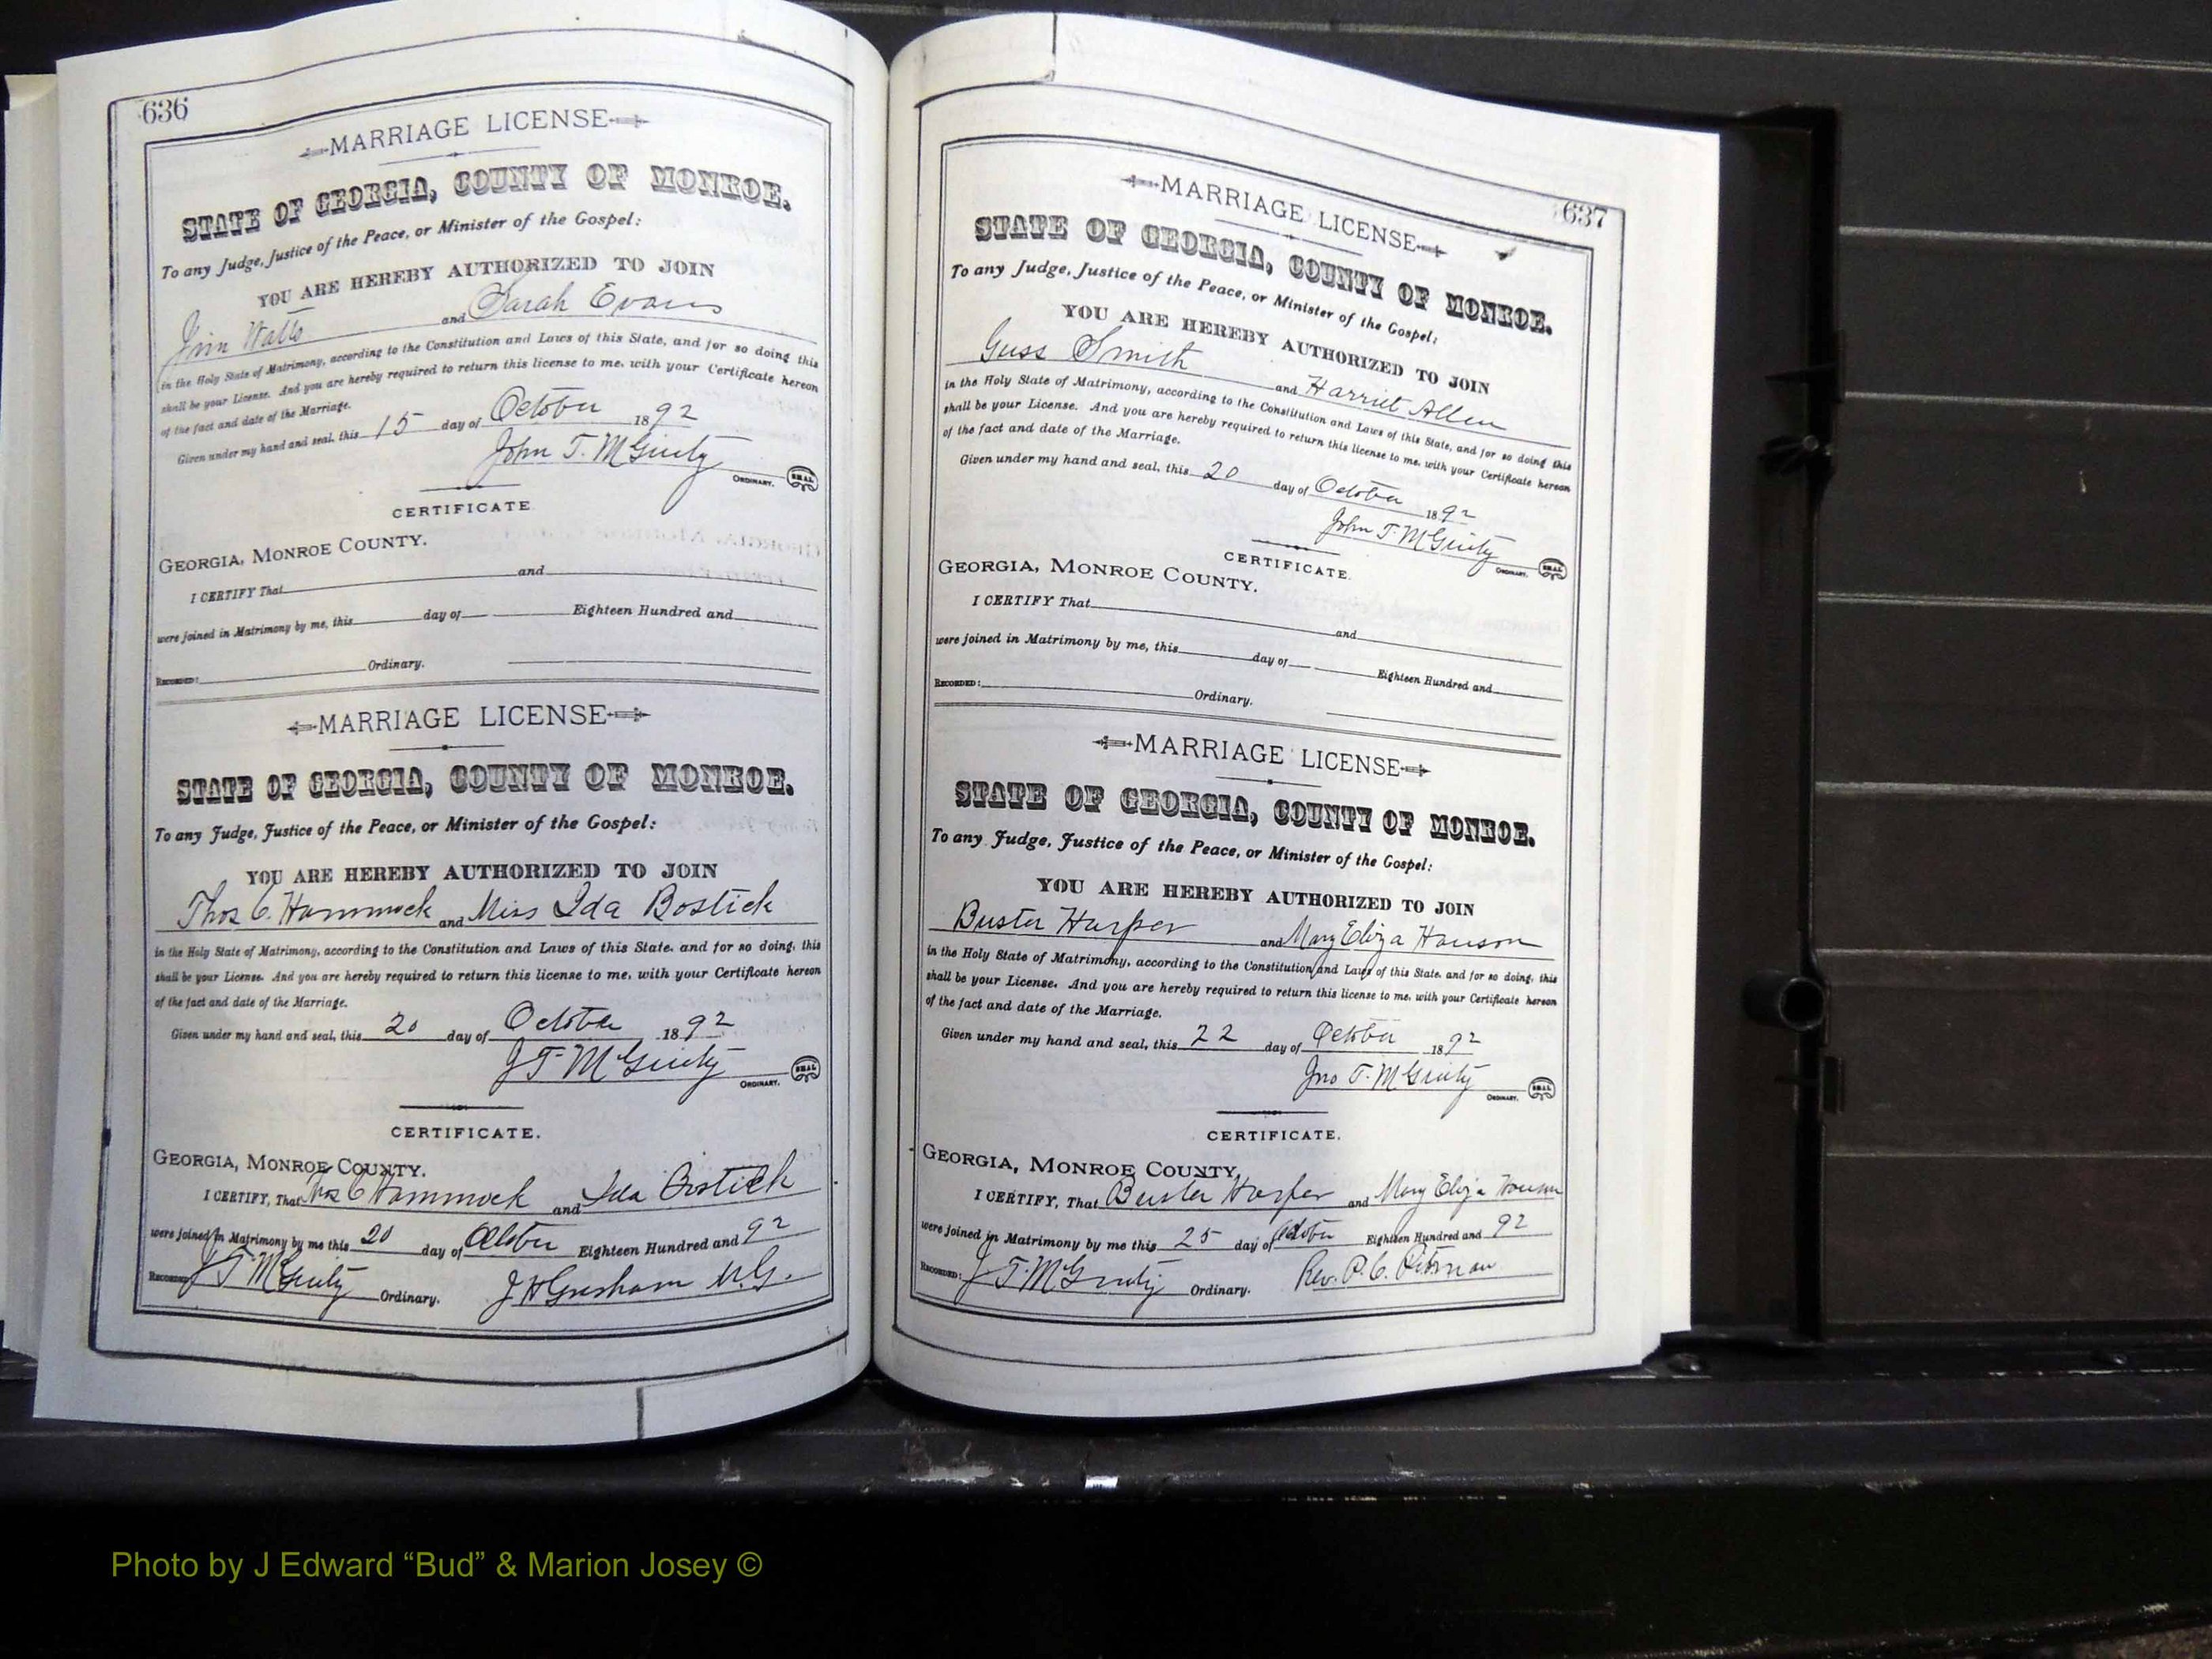 636
MARRIAGE LICENSE
STATE OF GEORGIA, COUNTY OF MONROE.
To any Judge, Justice of the Peace, or Minister of the Gospel:
YOU ARE HEREBY AUTHORIZED TO JOIN
Jim Watts and Sarah Evans
in the Holy State of Matrimony, according to the Constitution and Laws of this State, and for so doing this
shall be your License. And you are hereby required to return this license to me, with your Certificate hereon
of the fact and date of the Marriage.
Given under my hand and seal, this 15 day of October 1892
John T. McGinty
ORDINARY. SEAL
CERTIFICATE
GEORGIA, MONROE COUNTY.
I CERTIFY That and
were joined in Matrimony by me, this day of Eighteen Hundred and
RECORDED: Ordinary.
MARRIAGE LICENSE
STATE OF GEORGIA, COUNTY OF MONROE.
To any Judge, Justice of the Peace, or Minister of the Gospel:
YOU ARE HEREBY AUTHORIZED TO JOIN
Thos C. Hammock and Miss Ida Bostick
in the Holy State of Matrimony, according to the Constitution and Laws of this State, and for so doing, this
shall be your License. And you are hereby required to return this license to me, with your Certificate hereon
of the fact and date of the Marriage.
Given under my hand and seal, this 20 day of October 1892
J T McGinty
ORDINARY. SEAL
CERTIFICATE.
GEORGIA, MONROE COUNTY.
I CERTIFY, That Thos C Hammock and Ida Bostick
were joined in Matrimony by me this 20 day of October Eighteen Hundred and 92
RECORDED: J T McGinty Ordinary. J H Gresham M.G.
637
MARRIAGE LICENSE
STATE OF GEORGIA, COUNTY OF MONROE.
To any Judge, Justice of the Peace, or Minister of the Gospel:
YOU ARE HEREBY AUTHORIZED TO JOIN
Guss Smith and Harriet Allen
in the Holy State of Matrimony, according to the Constitution and Laws of this State, and for so doing this
shall be your License. And you are hereby required to return this license to me, with your Certificate hereon
of the fact and date of the Marriage.
Given under my hand and seal, this 20 day of October 1892
John T. McGinty
ORDINARY. SEAL
CERTIFICATE.
GEORGIA, MONROE COUNTY.
I CERTIFY That and
were joined in Matrimony by me, this day of Eighteen Hundred and
RECORDED: Ordinary.
MARRIAGE LICENSE
STATE OF GEORGIA, COUNTY OF MONROE.
To any Judge, Justice of the Peace, or Minister of the Gospel:
YOU ARE HEREBY AUTHORIZED TO JOIN
Buster Harper and Mary Eliza Hanson
in the Holy State of Matrimony, according to the Constitution and Laws of this State, and for so doing, this
shall be your License. And you are hereby required to return this license to me, with your Certificate hereon
of the fact and date of the Marriage.
Given under my hand and seal, this 22 day of October 1892
Jno T. McGinty
ORDINARY. SEAL
CERTIFICATE.
GEORGIA, MONROE COUNTY,
I CERTIFY, That Buster Harper and Mary Eliza
were joined in Matrimony by me this 25 day of October Eighteen Hundred and 92
RECORDED: J T. McGinty Ordinary. Rev. P. C.
Photo by J Edward “Bud” & Marion Josey ©